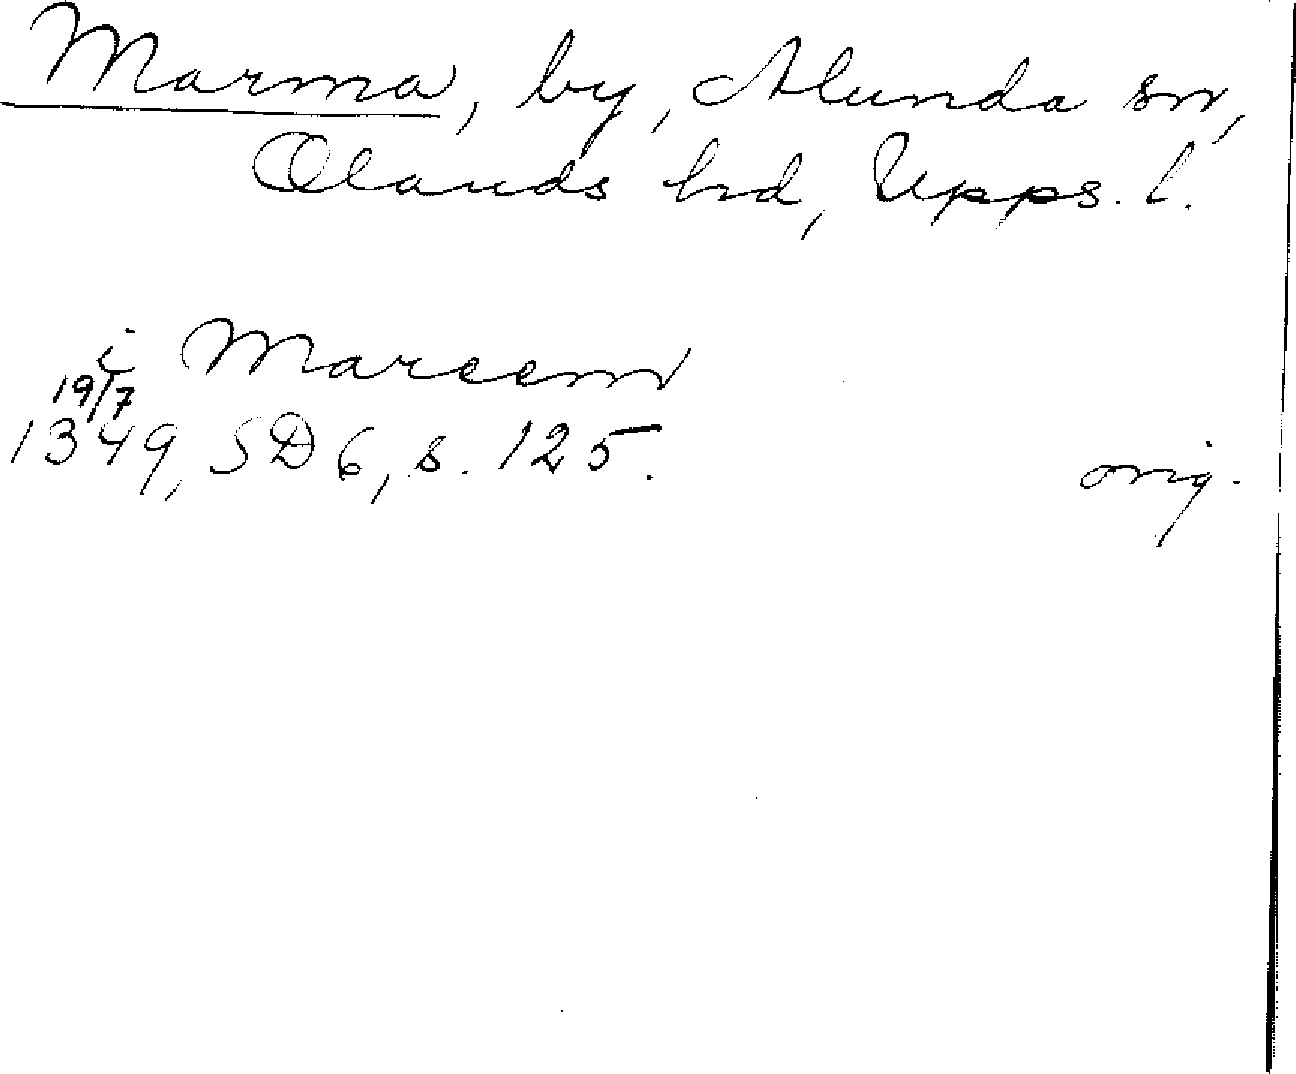 Marma, by, Alunda sn,
Olands hd, Upps. l.
i Mareem
19/7
1349, SD 6, s. 125.
orig.